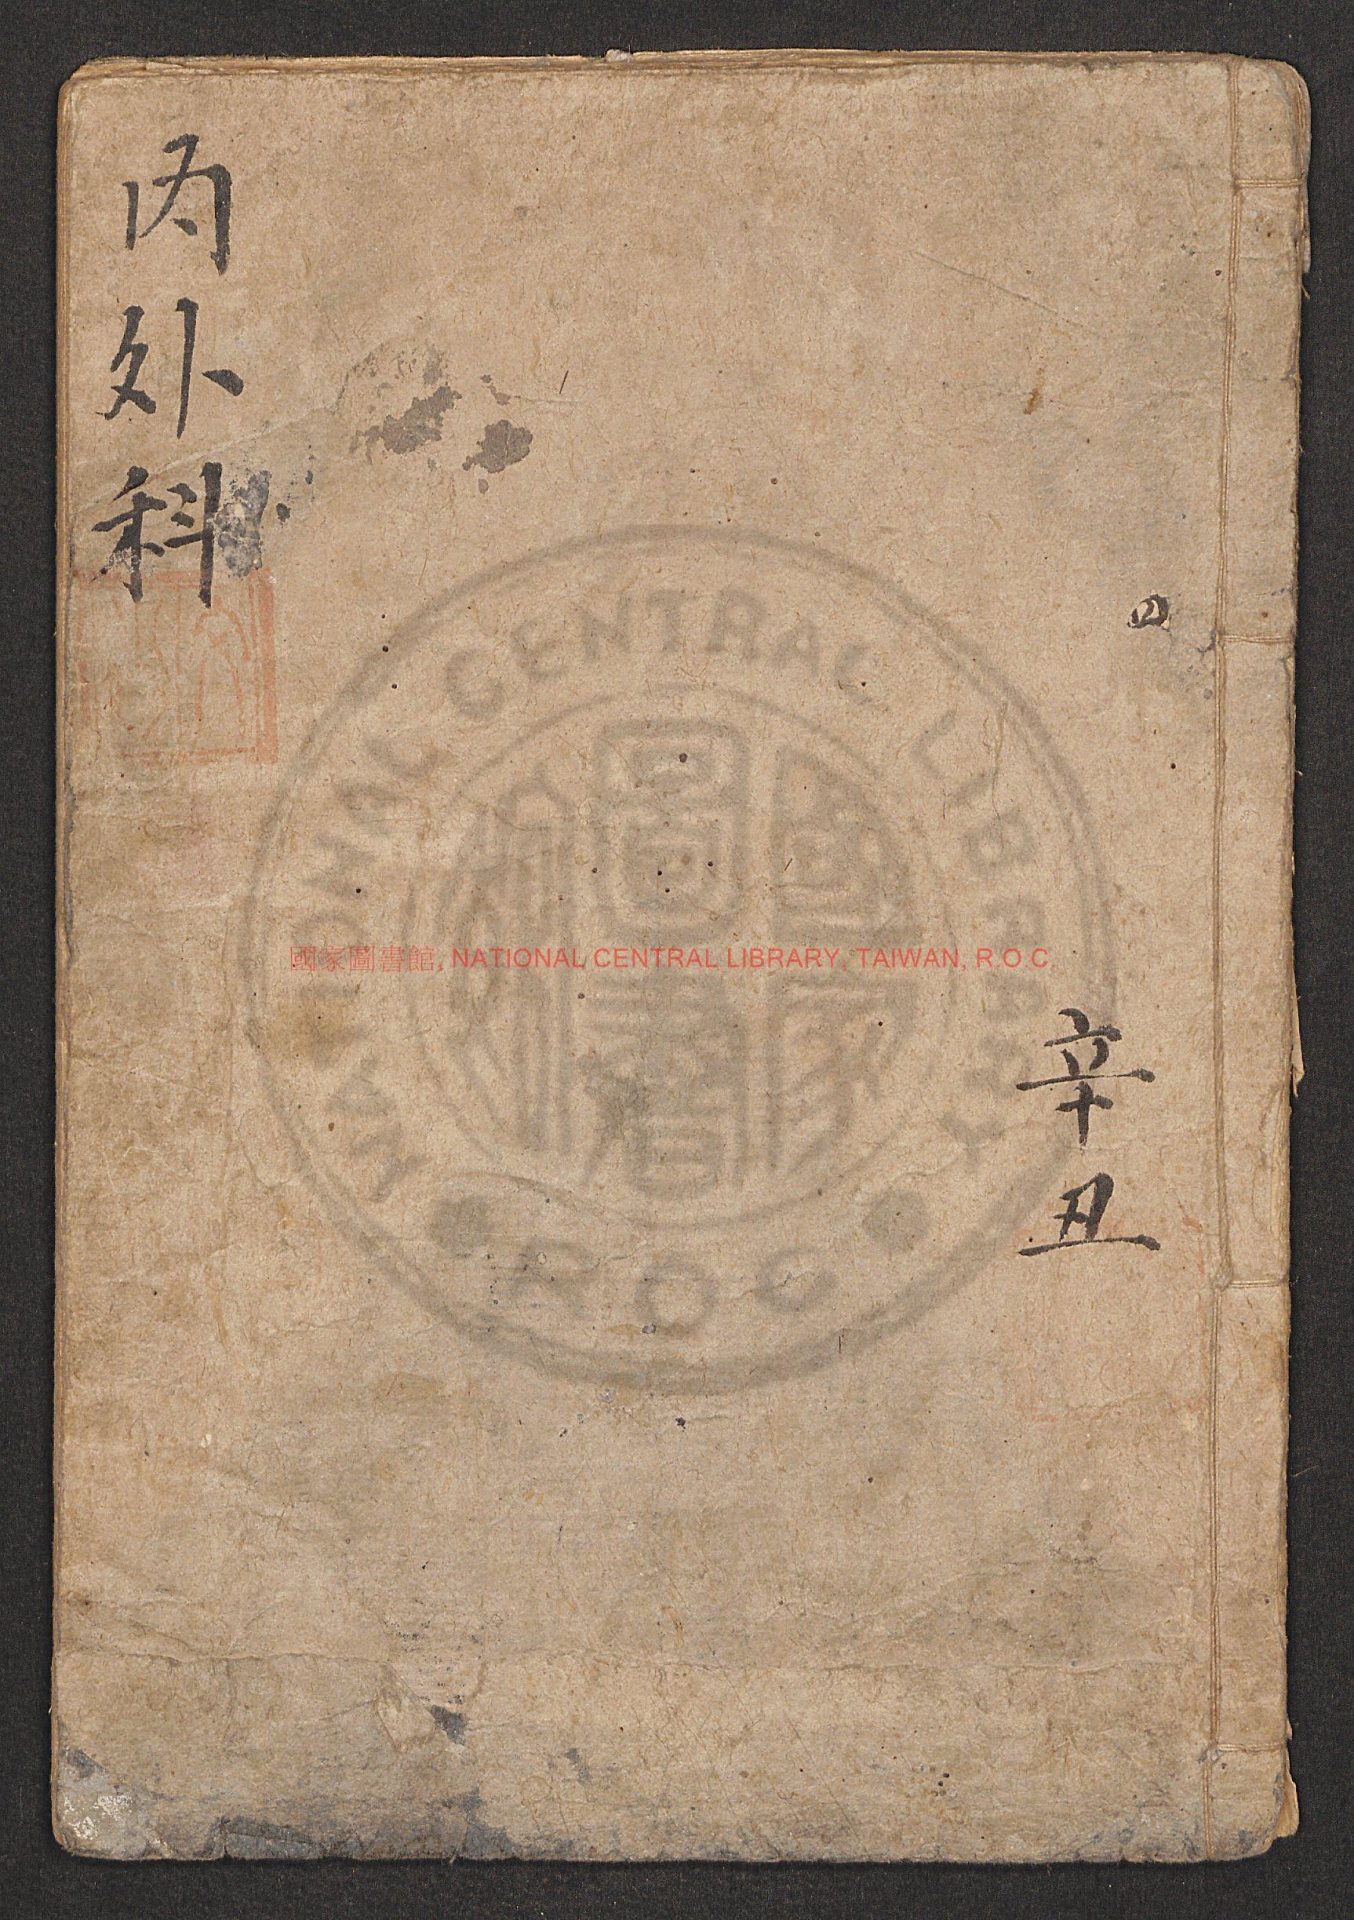 辛丑
内外科
國家圖書館, NATIONAL CENTRAL LIBRARY, TAIWAN, R.O.C
NATIONAL CENTRAL LIBRARY
ROC
國家圖書館